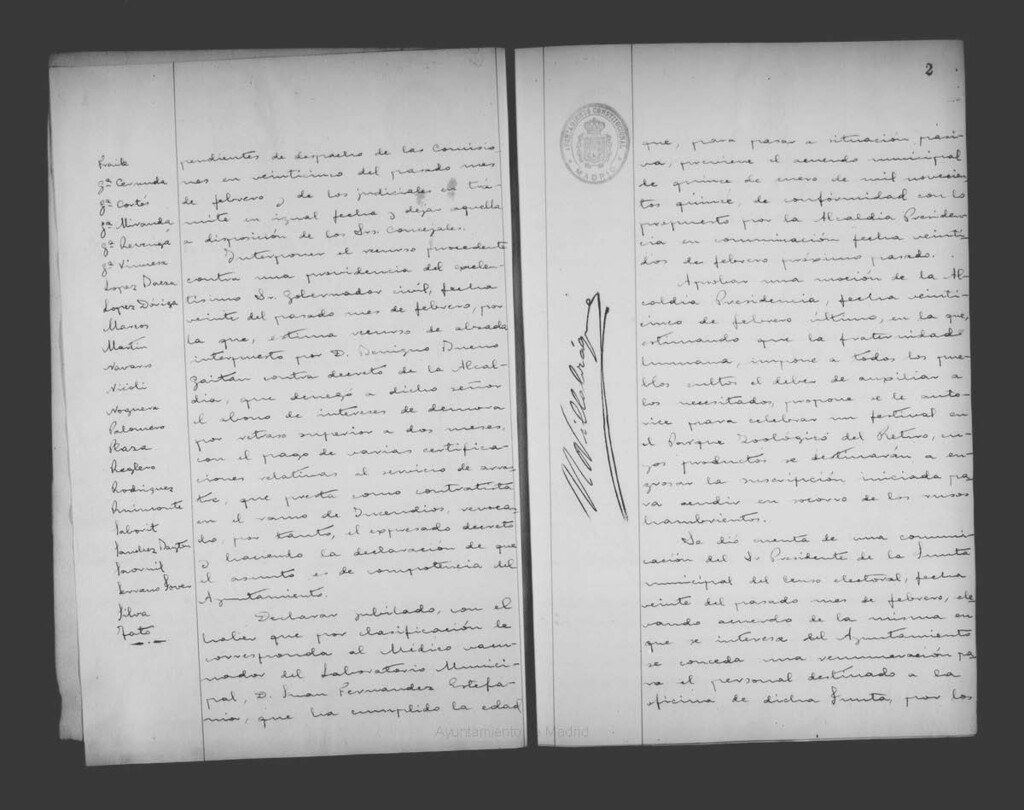 Fraile
Gª Cernuda
Gª Cortés
Gª Miranda
Gª Revenga
Gª Vinuesa
Lopez Baeza
Lopez Dóriga
Marcos
Martín
Navarro
Nicoli
Noguera
Palomero
Plaza
Reglero
Rodriguez
Ruimonte
Saborit
Sanchez Bayton
Saornil
Serrano Jover
Silva
Tato
pendientes de despacho de las Comisio-
nes en veinticinco del pasado mes
de febrero y de los judiciales en trá-
mite en igual fecha y dejar aquella
a disposición de los Srs. Concejales.
Interponer el recurso procedente
contra una providencia del exclen-
tísimo Sr. Gobernador civil, fecha
veinte del pasado mes de febrero, por
la que, estima recurso de alzada
interpuesto por D. Benigno Bueno
Gaitán contra decreto de la Alcal-
día, que denegó a dicho señor
el abono de intereses de demora
por retraso superior a dos meses,
con el pago de varias certifica-
ciones relativas al servicio de arras-
tre, que presta como contratista
en el ramo de Incendios, revocan-
do, por tanto, el expresado decreto
y haciendo la declaración de que
el asunto es de competencia del
Ayuntamiento.
Declarar jubilado, con el
haber que por clasificación le
corresponda al Médico vacu-
nador del Laboratorio Munici-
pal, D. Juan Fernandez Estefa-
nia, que ha cumplido la edad
2
AYUNTAMIENTO CONSTITUCIONAL
MADRID
que, para pasar a situación pasi-
va, previene el acuerdo municipal
de quince de enero de mil novecien-
tos quince, de conformidad con lo
propuesto por la Alcaldía Presiden-
cia en comunicación fecha veinti-
dios de febrero próximo pasado.
Aprobar una moción de la Al-
caldía Presidencia, fecha veinti-
cinco de febrero último, en la que,
estimando que la fraternidad
humana, impone a todos los pue-
blos cultos el deber de auxiliar a
los necesitados, propone se le auto-
rice para celebrar un festival en
el Parque Zoológico del Retiro, cu-
yos productos se destinarán a en-
grosar la suscripción iniciada pa-
ra acudir en socorro de los rusos
hambrientos.
Se dió cuenta de una comuni-
cación del Sr Presidente de la Junta
municipal del Censo electoral, fecha
veinte del pasado mes de febrero, ele-
vando acuerdo de la misma en
que se interesa del Ayuntamiento
se conceda una remuneración pa-
ra el personal destinado a la
oficina de dicha Junta, por los
Ayuntamiento de Madrid